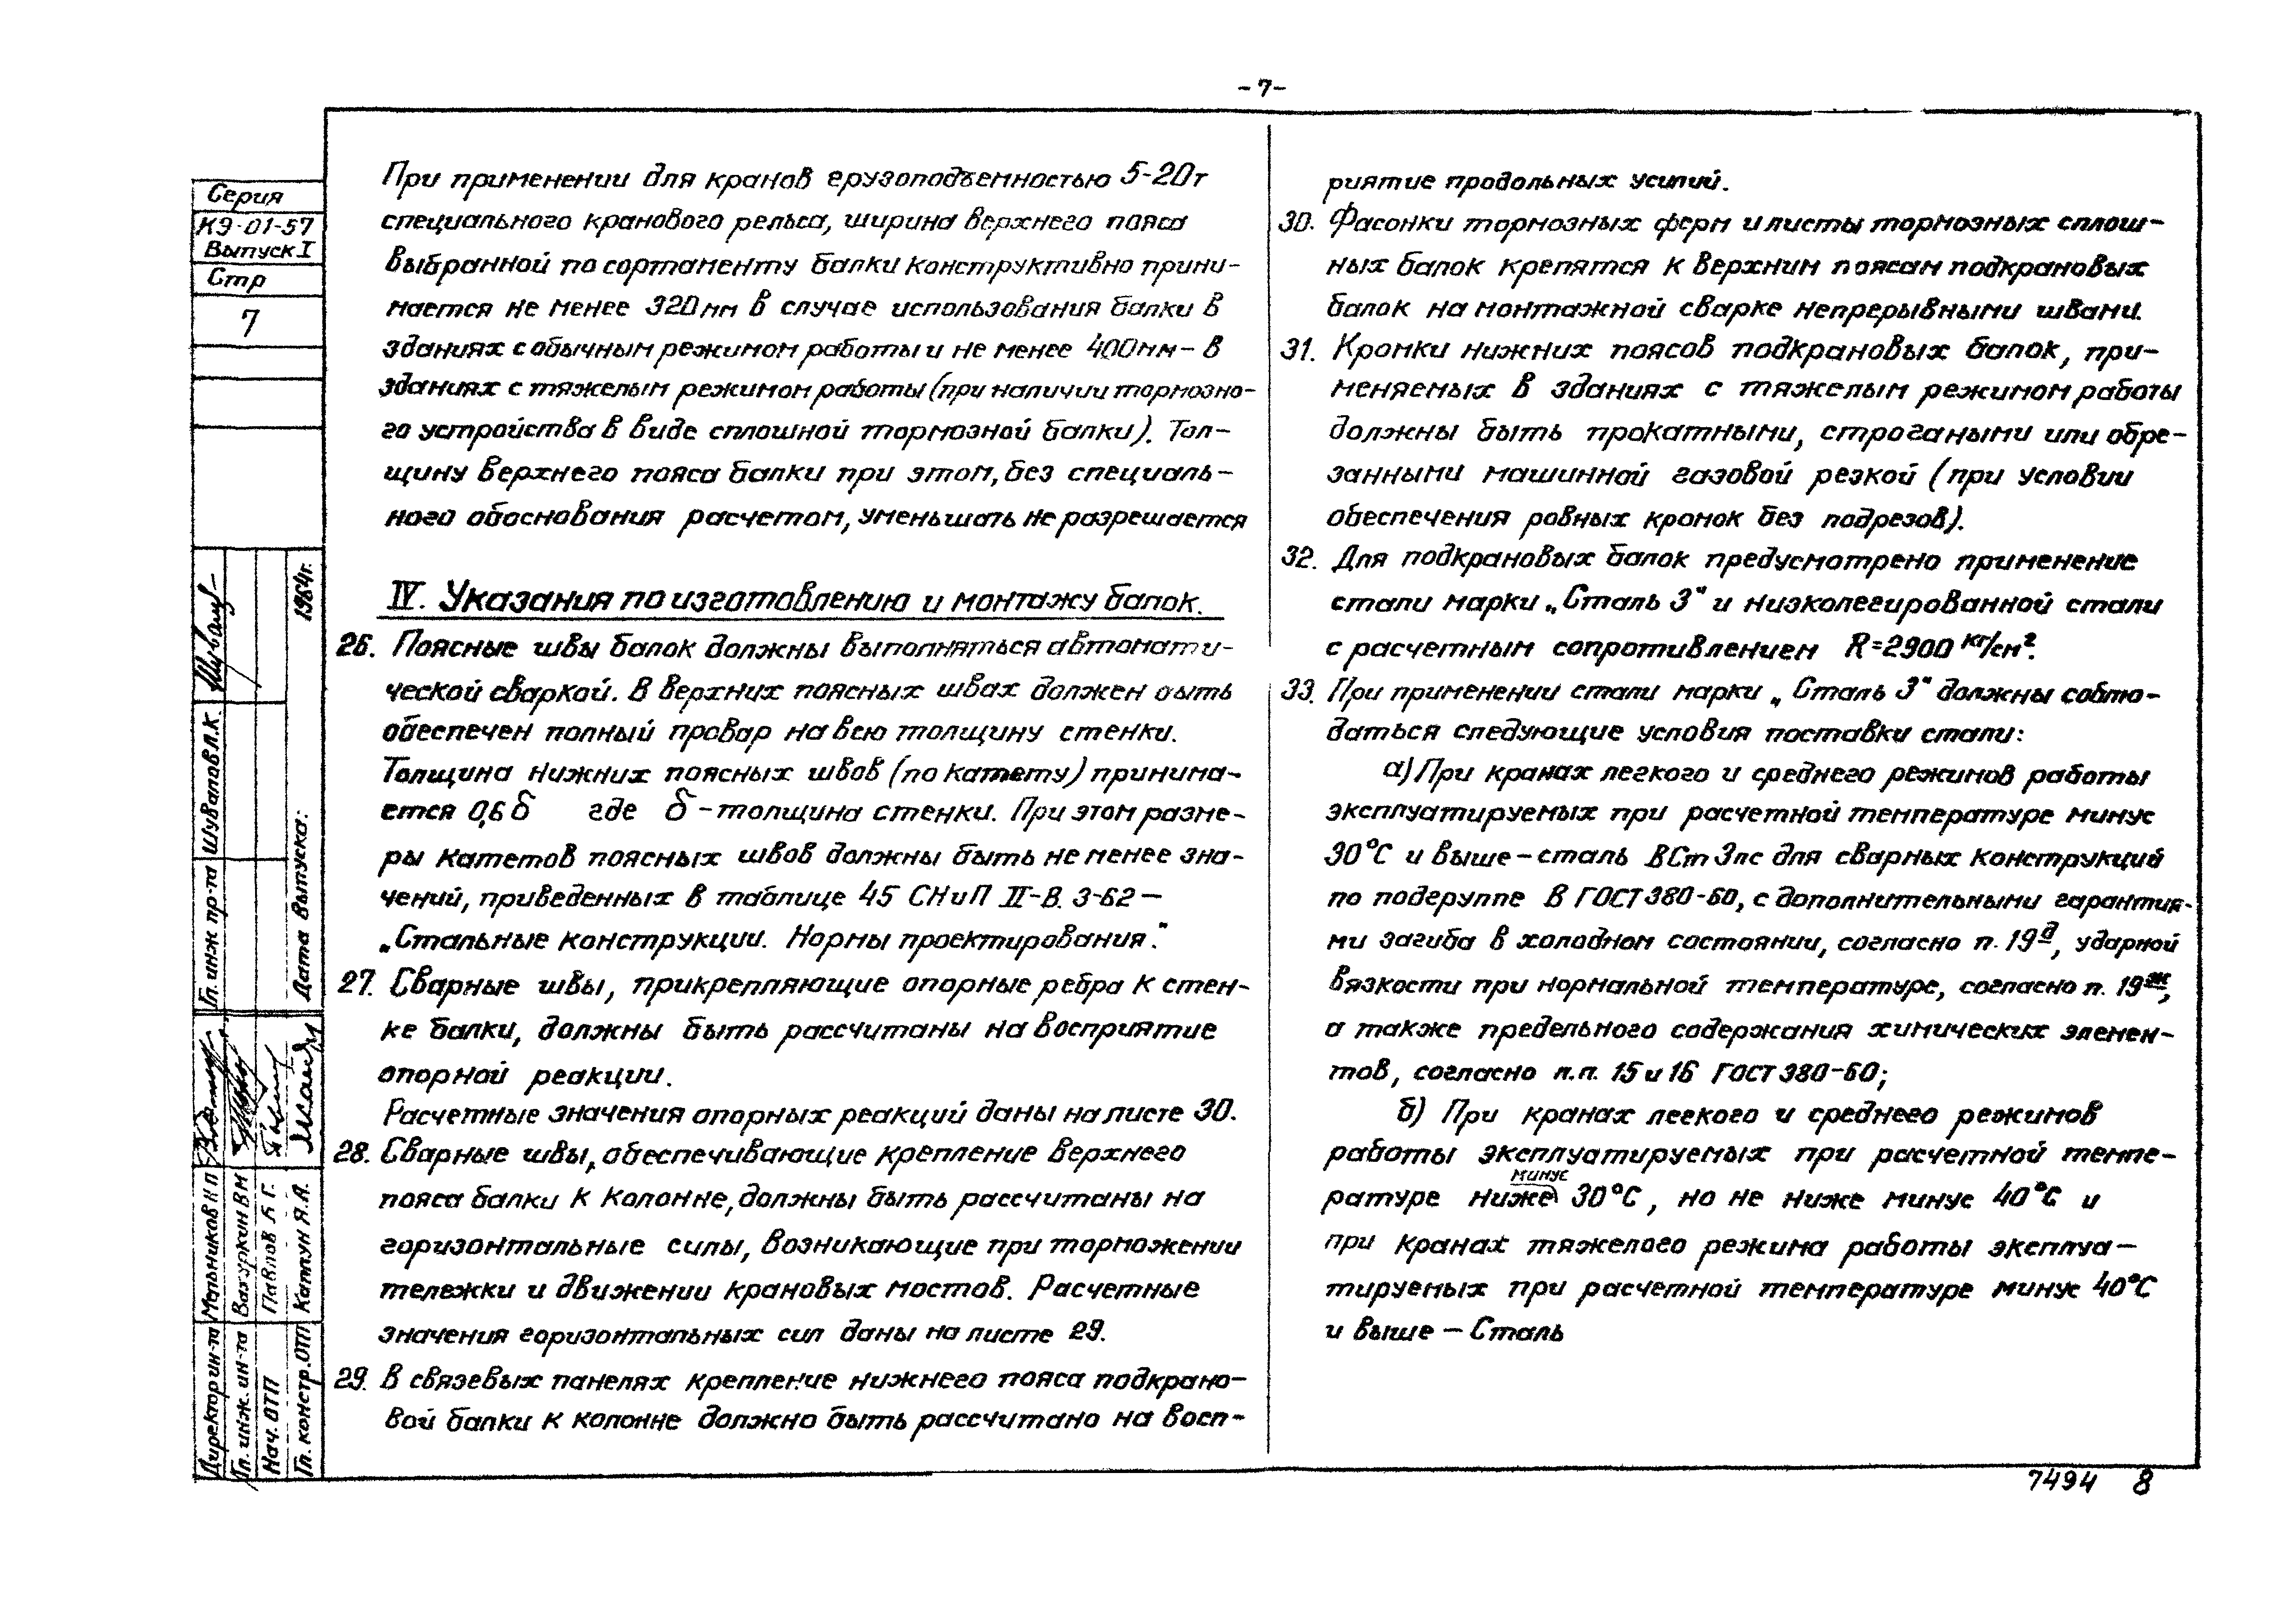 - 7 -
Серия
КЭ-01-57
Выпуск I
Стр
7
1964г.
Дата выпуска:
Гл. инж пр-та Шувалов Л.К.
Директор ин-та Мельников Н П
Гл. инж. ин-та Вахуркин ВМ
Нач. ОТП Павлов Б Г.
Гл. констр. ОТП Каплун Я.А.
При применении для кранов грузоподъемностью 5-20т
специального кранового рельса, ширина верхнего пояса
выбранной по сортаменту балки конструктивно прини-
мается не менее 320мм в случае использования балки в
зданиях с обычным режимом работы и не менее 400мм - в
зданиях с тяжелым режимом работы (при наличии тормозно-
го устройства в виде сплошной тормозной балки). Тол-
щину верхнего пояса балки при этом, без специаль-
ного обоснования расчетом, уменьшать не разрешается
IV. Указания по изготовлению и монтажу балок.
26. Поясные швы балок должны выполняться автомати-
ческой сваркой. В верхних поясных швах должен быть
обеспечен полный провар на всю толщину стенки.
Толщина нижних поясных швов (по катету) принима-
ется 0,6 δ где δ - толщина стенки. При этом разме-
ры катетов поясных швов должны быть не менее зна-
чений, приведенных в таблице 45 СНиП II-В. 3-62 —
„Стальные конструкции. Нормы проектирования".
27. Сварные швы, прикрепляющие опорные ребра к стен-
ке балки, должны быть рассчитаны на восприятие
опорной реакции.
Расчетные значения опорных реакций даны на листе 30.
28. Сварные швы, обеспечивающие крепление верхнего
пояса балки к колонне, должны быть рассчитаны на
горизонтальные силы, возникающие при торможении
тележки и движении крановых мостов. Расчетные
значения горизонтальных сил даны на листе 29.
29. В связевых панелях крепление нижнего пояса подкрано-
вой балки к колонне должно быть рассчитано на восп-
риятие продольных усилий.
30. Фасонки тормозных ферм и листы тормозных сплош-
ных балок крепятся к верхним поясам подкрановых
балок на монтажной сварке непрерывными швами.
31. Кромки нижних поясов подкрановых балок, при-
меняемых в зданиях с тяжелым режимом работы
должны быть прокатными, строгаными или обре-
занными машинной газовой резкой (при условии
обеспечения ровных кромок без подрезов).
32. Для подкрановых балок предусмотрено применение
стали марки „Сталь 3" и низколегированной стали
с расчетным сопротивлением R=2900 кг/см².
33. При применении стали марки „Сталь 3" должны соблю-
даться следующие условия поставки стали:
а) При кранах легкого и среднего режимов работы
эксплуатируемых при расчетной температуре минус
30°С и выше - сталь ВСт 3пс для сварных конструкций
по подгруппе В ГОСТ 380-60, с дополнительными гарантия-
ми загиба в холодном состоянии, согласно п. 19д, ударной
вязкости при нормальной температуре, согласно п. 19ж,
а также предельного содержания химических элемен-
тов, согласно п.п. 15 и 16 ГОСТ 380-60;
б) При кранах легкого и среднего режимов
работы эксплуатируемых при расчетной темпе-
ратуре ниже минус 30°С, но не ниже минус 40°С и
при кранах тяжелого режима работы эксплуа-
тируемых при расчетной температуре минус 40°С
и выше - Сталь
7494 8